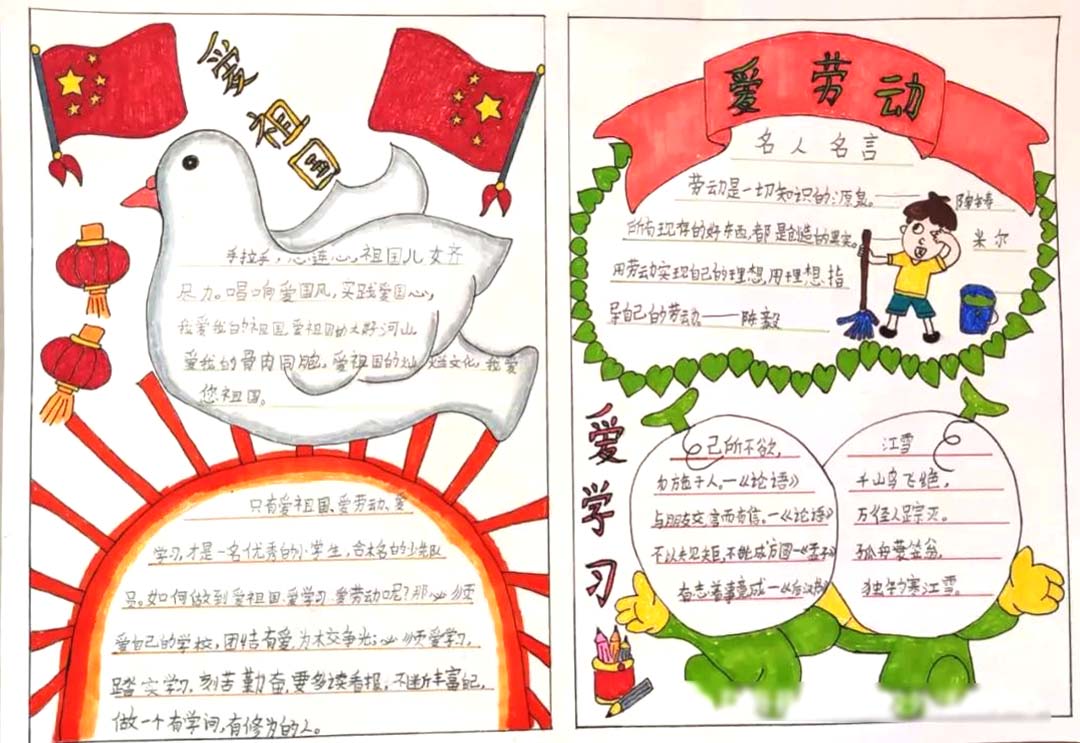 爱祖国
手拉手，心连心，祖国儿女齐
尽力。唱响爱国风，实践爱国心，
我爱我的祖国，爱祖国的大好河山，
爱我的骨肉同胞，爱祖国的灿烂文化，我爱
您祖国。
只有爱祖国、爱劳动、爱
学习，才是一名优秀的小学生，合格的少先队
员。如何做到爱祖国、爱学习、爱劳动呢？那必须
爱自己的学校，团结有爱，为校争光；必须爱学习，
踏实学习，刻苦勤奋，要多读看报，不断丰富自己，
做一个有学问，有修为的人。
爱劳动
名人名言
劳动是一切知识的源泉。——陶铸
所有现存的好东西，都是创造的果实。米尔
用劳动实现自己的理想，用理想指
导自己的劳动。——陈毅
爱学习
己所不欲，
勿施于人，—《论语》
与朋友交，言而有信。—《论语》
不以规矩，不能成方圆—《孟子》
有志者事竟成—《后汉书》
江雪
千山鸟飞绝，
万径人踪灭。
孤舟蓑笠翁，
独钓寒江雪。